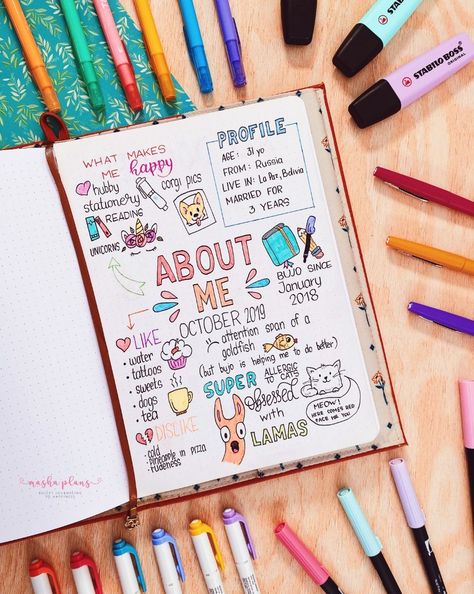 STABILO BOSS
ORIGINAL
STABILO BOSS
ORIGINAL
WHAT MAKES
ME happy
hubby
stationery
corgi pics
READING
UNICORNS
PROFILE
AGE: 31 yo
FROM: Russia
LIVE IN: La Paz, Bolivia
MARRIED FOR
3 YEARS
ABOUT
ME
OCTOBER 2019
BUJO SINCE
January
2018
LIKE
• water
• tattoos
• sweets
• dogs
• tea
attention span of a
goldfish
(but bujo is helping me to do better)
SUPER
ALLERGIC
TO CATS
MEOW!
HERE COMES RED
FACE FOR YOU
Obsessed
with
LAMAS
DISLIKE
• cold
• pineapple in pizza
• rudeness
masha plans
BULLET JOURNALING
TO HAPPINESS